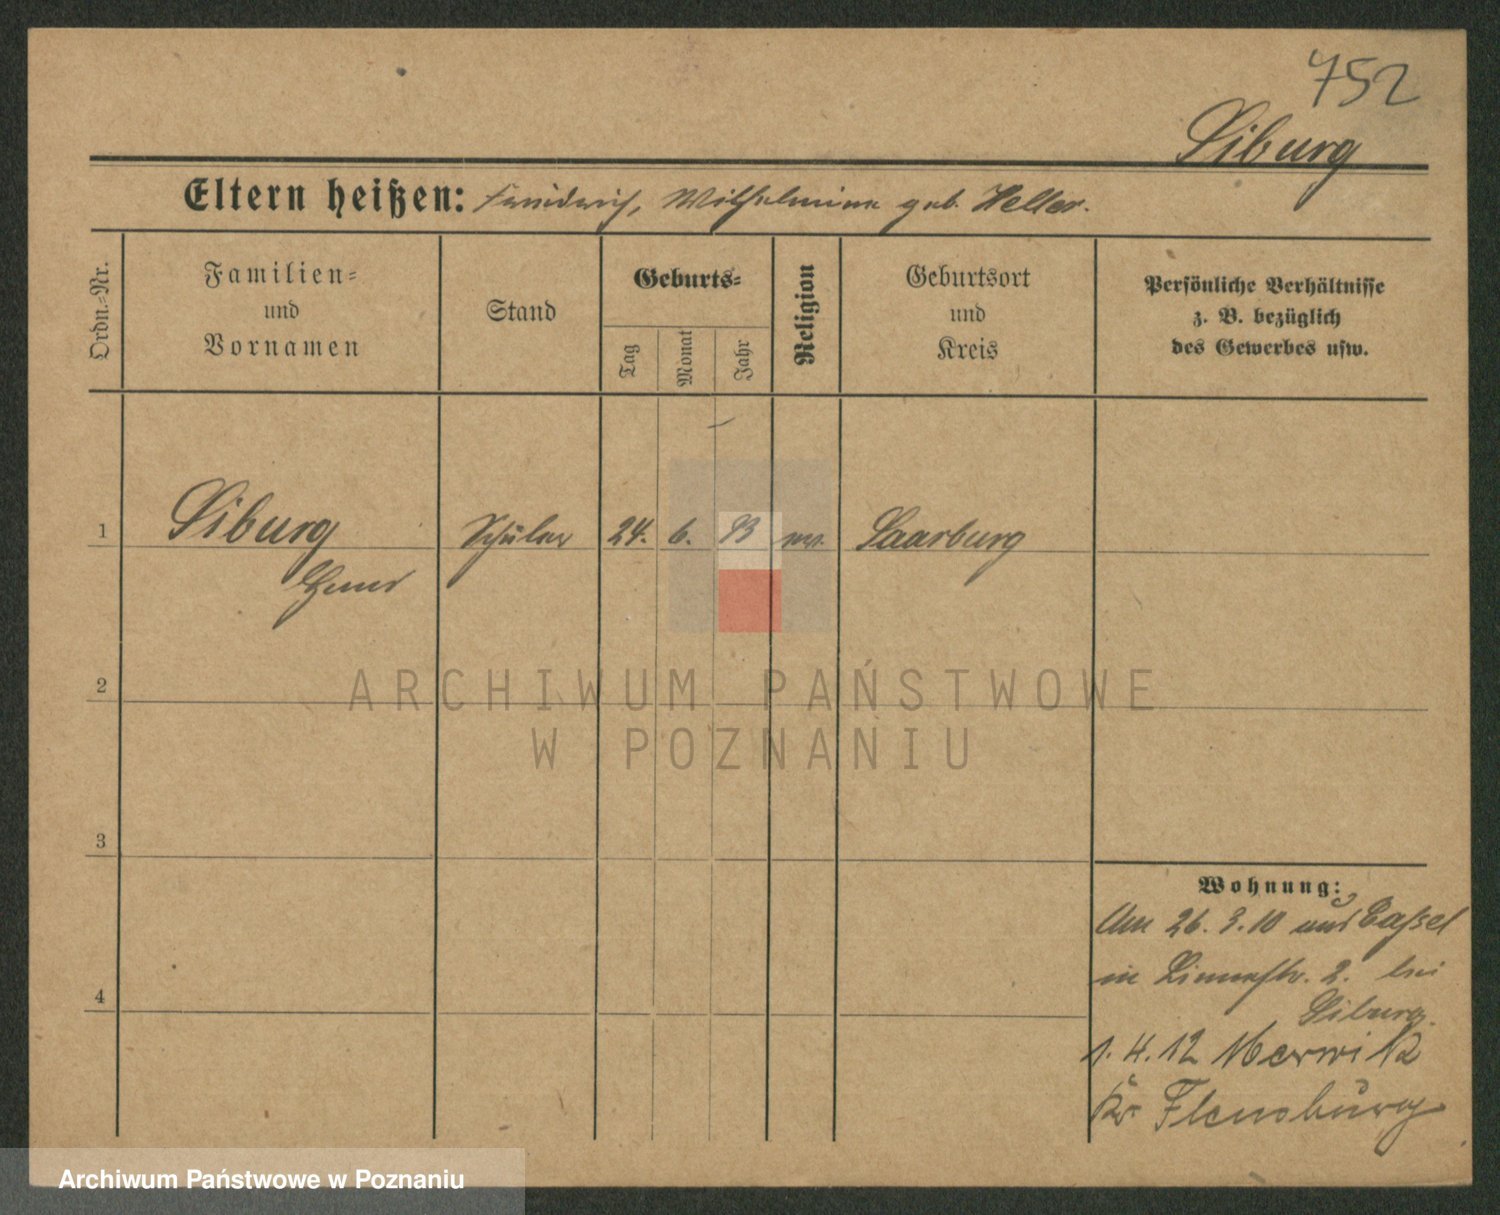 752
Siburg
Eltern heißen: Friedrich, Wilhelmine geb. Heller.
Ordn.-Nr.
Familien-
und
Vornamen
Stand
Geburts-
Tag
Monat
Jahr
Religion
Geburtsort
und
Kreis
Persönliche Verhältnisse
z. B. bezüglich
des Gewerbes usw.
1 Siburg Schüler 24. 6. 93 ev. Saarburg
Hans
2
ARCHIWUM PAŃSTWOWE
W POZNANIU
3
4
Wohnung:
Am 26. 3. 10 aus Cassel
in Linnestr. 2. bei
Siburg.
1. 4. 12 Mürwik
Kr Flensburg
Archiwum Państwowe w Poznaniu